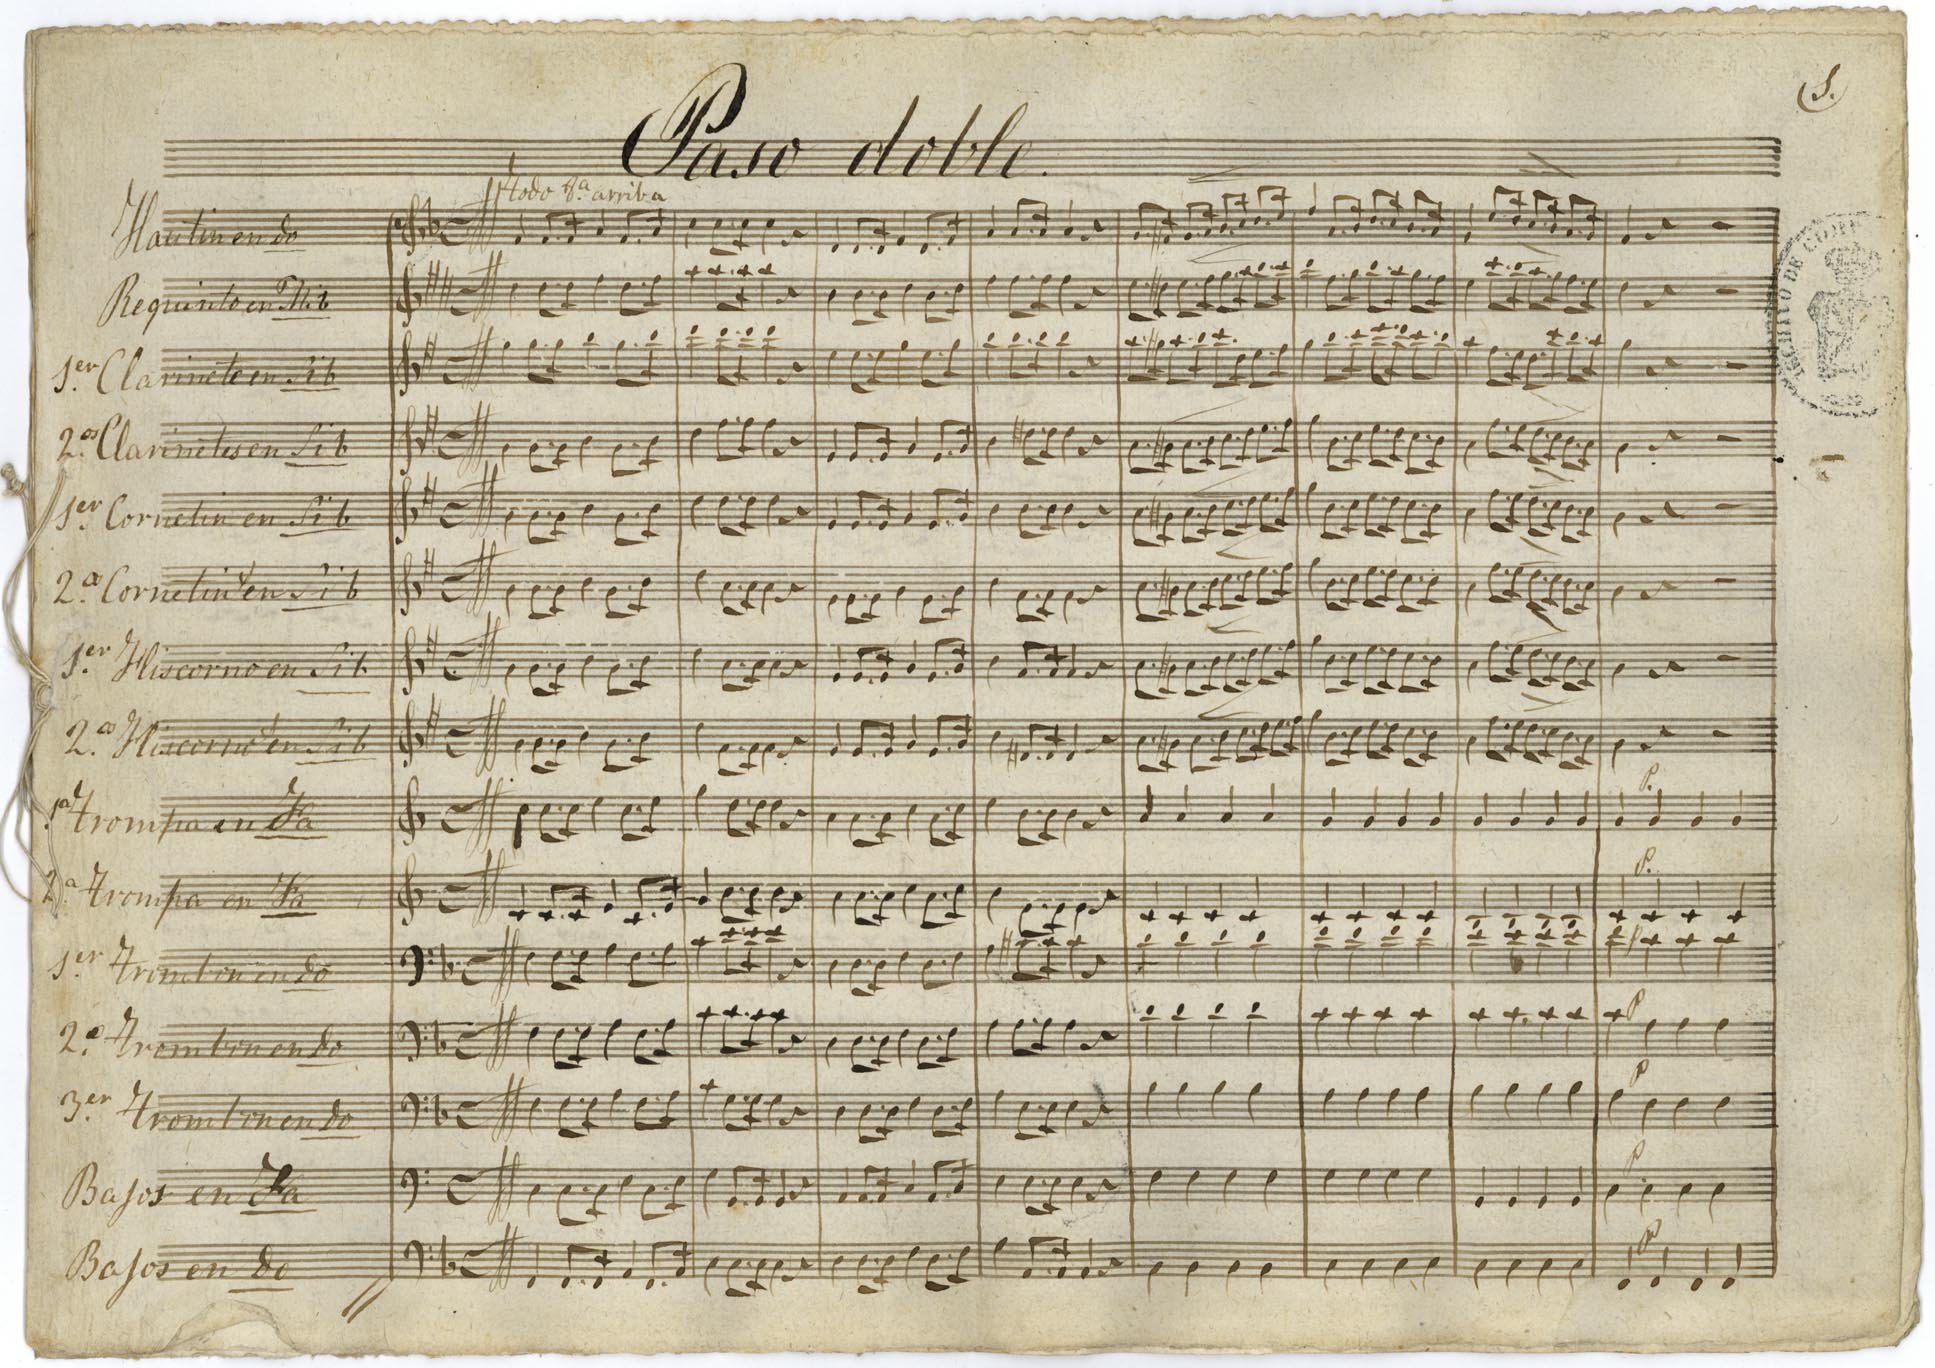 1.
Paso doble.
todo 8.ª arriba
Flautin en do
Requinto en Mib
1.er Clarinete en Sib
2.os Clarinetes en Sib
1.er Cornetin en Sib
2.º Cornetin en Sib
1.er Fliscorno en Sib
2.º Fliscorno en Sib
1.ª Trompa en Fa
P.
2.ª Trompa en Fa
P.
1.er Trombon en do
P
2.º Trombon en do
P
3.er Trombon en do
P
Bajos en Fa
P
Bajos en do
P